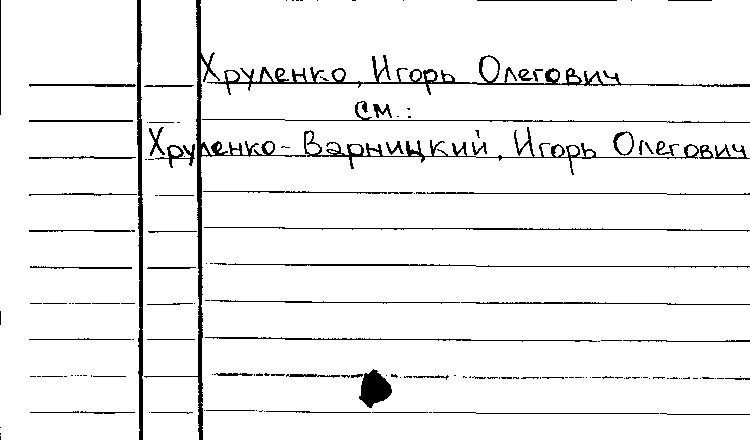 Хруленко, Игорь Олегович
см.:
Хруленко-Варницкий, Игорь Олегович